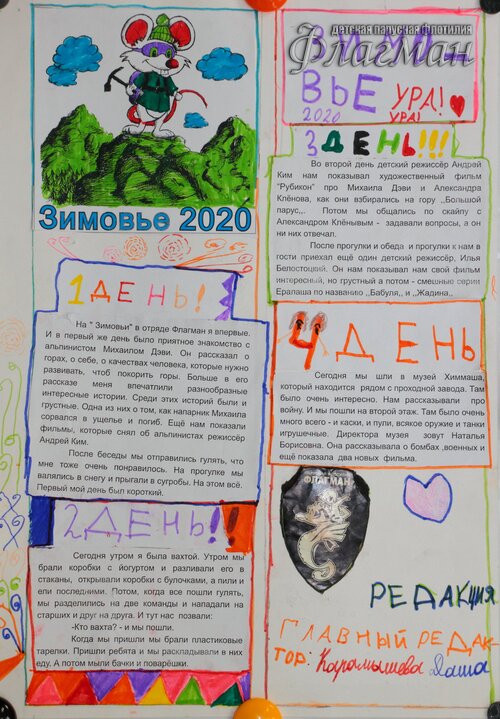 Зимовье 2020
1 ДЕНЬ!
На " Зимовьи" в отряде Флагман я впервые.
И в первый же день было приятное знакомство с
альпинистом Михаилом Дэви. Он рассказал о
горах, о себе, о качествах человека, которые нужно
развивать, чтоб покорить горы. Больше в его
рассказе меня впечатлили разнообразные
интересные истории. Среди этих историй были и
грустные. Одна из них о том, как напарник Михаила
сорвался в ущелье и погиб. Ещё нам показали
фильмы, которые снял об альпинистах режиссёр
Андрей Ким.
После беседы мы отправились гулять, что
мне тоже очень понравилось. На прогулке мы
валялись в снегу и прыгали в сугробы. На этом всё.
Первый мой день был короткий.
2 ДЕНЬ!!
Сегодня утром я была вахтой. Утром мы
брали коробки с йогуртом и разливали его в
стаканы, открывали коробки с булочками, а пили и
ели последними. Потом, когда все пошли гулять,
мы разделились на две команды и нападали на
старших и друг на друга. И тут нас позвали:
-Кто вахта? - и мы пошли.
Когда мы пришли мы брали пластиковые
тарелки. Пришли ребята и мы раскладывали в них
еду. А потом мыли бачки и поварёшки.
детская парусная флотилия
Флагман
ЗИМО-
ВЬЕ УРА!
2020 УРА!
3 ДЕНЬ!!!
Во второй день детский режиссёр Андрей
Ким нам показывал художественный фильм
"Рубикон" про Михаила Дэви и Александра
Клёнова, как они взбирались на гору ,,Большой
парус,,. Потом мы общались по скайпу с
Александром Клёнывым - задавали вопросы, а он
ни них отвечал.
После прогулки и обеда и прогулки к нам в
гости приехал ещё один детский режиссёр, Илья
Белостоцкий. Он нам показывал нам свой фильм
интересный, но грустный а потом - смешные серии
Ералаша по названию ,,Бабуля,, и ,,Жадина,,
4 ДЕНЬ
Сегодня мы шли в музей Химмаша,
который находится рядом с проходной завода. Там
было очень интересно. Нам рассказывали про
войну. И мы пошли на второй этаж. Там было очень
много всего - и каски, и пули, всякое оружие и танки
игрушечные. Директора музея зовут Наталья
Борисовна. Она рассказывала о бомбах ,военных и
ещё показала два новых фильма.
ФЛАГМАН
РЕДАКЦИЯ
ГЛАВНЫЙ РЕДАК-
ТОР: Карамышева Даша